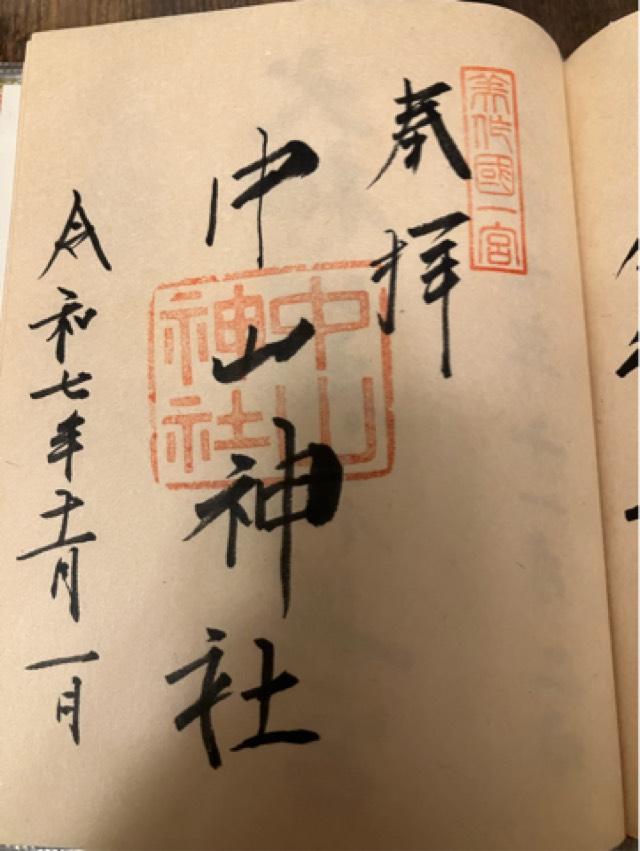 美作國一宮
奉拝
中山神社
中山
神社
令和七年十一月一日